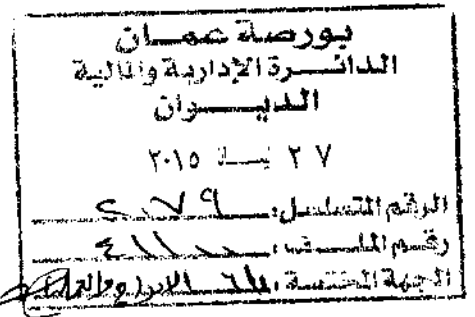 بورصة عمان
الدائرة الإدارية والمالية
الديوان
٢٧ نيسان ٢٠١٥
الرقم المتسلسل: ٢٠٧٩
رقم الملف:
الجهة المختصة: الإدراج